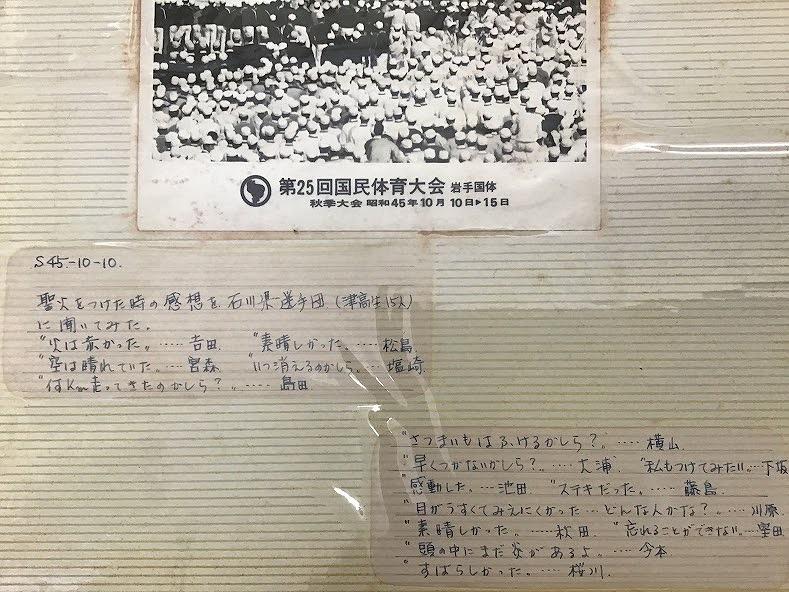 第25回国民体育大会 岩手国体
秋季大会 昭和45年10月10日▶15日
S45.-10-10.
聖火をつけた時の感想を石川県選手団(津高生15人)
に聞いてみた。
"火は赤かった。……吉田 "素晴しかった。……松島
"空は晴れていた。……宮森 "いつ消えるのかしら。…塩崎
"何Km走ってきたのかしら?。……島田
"さつまいもはふけるかしら?。……横山
"早くつかないかしら?。……大浦 "私もつけてみたい。…下坂
"感動した。…池田 "ステキだった。……藤島
"目がうすくてみえにくかった…どんな人かな?。……川原
"素晴しかった。……秋田 "忘れることができない。…堅田
"頭の中にまだ炎があるよ。……今本
"すばらしかった。……桜川